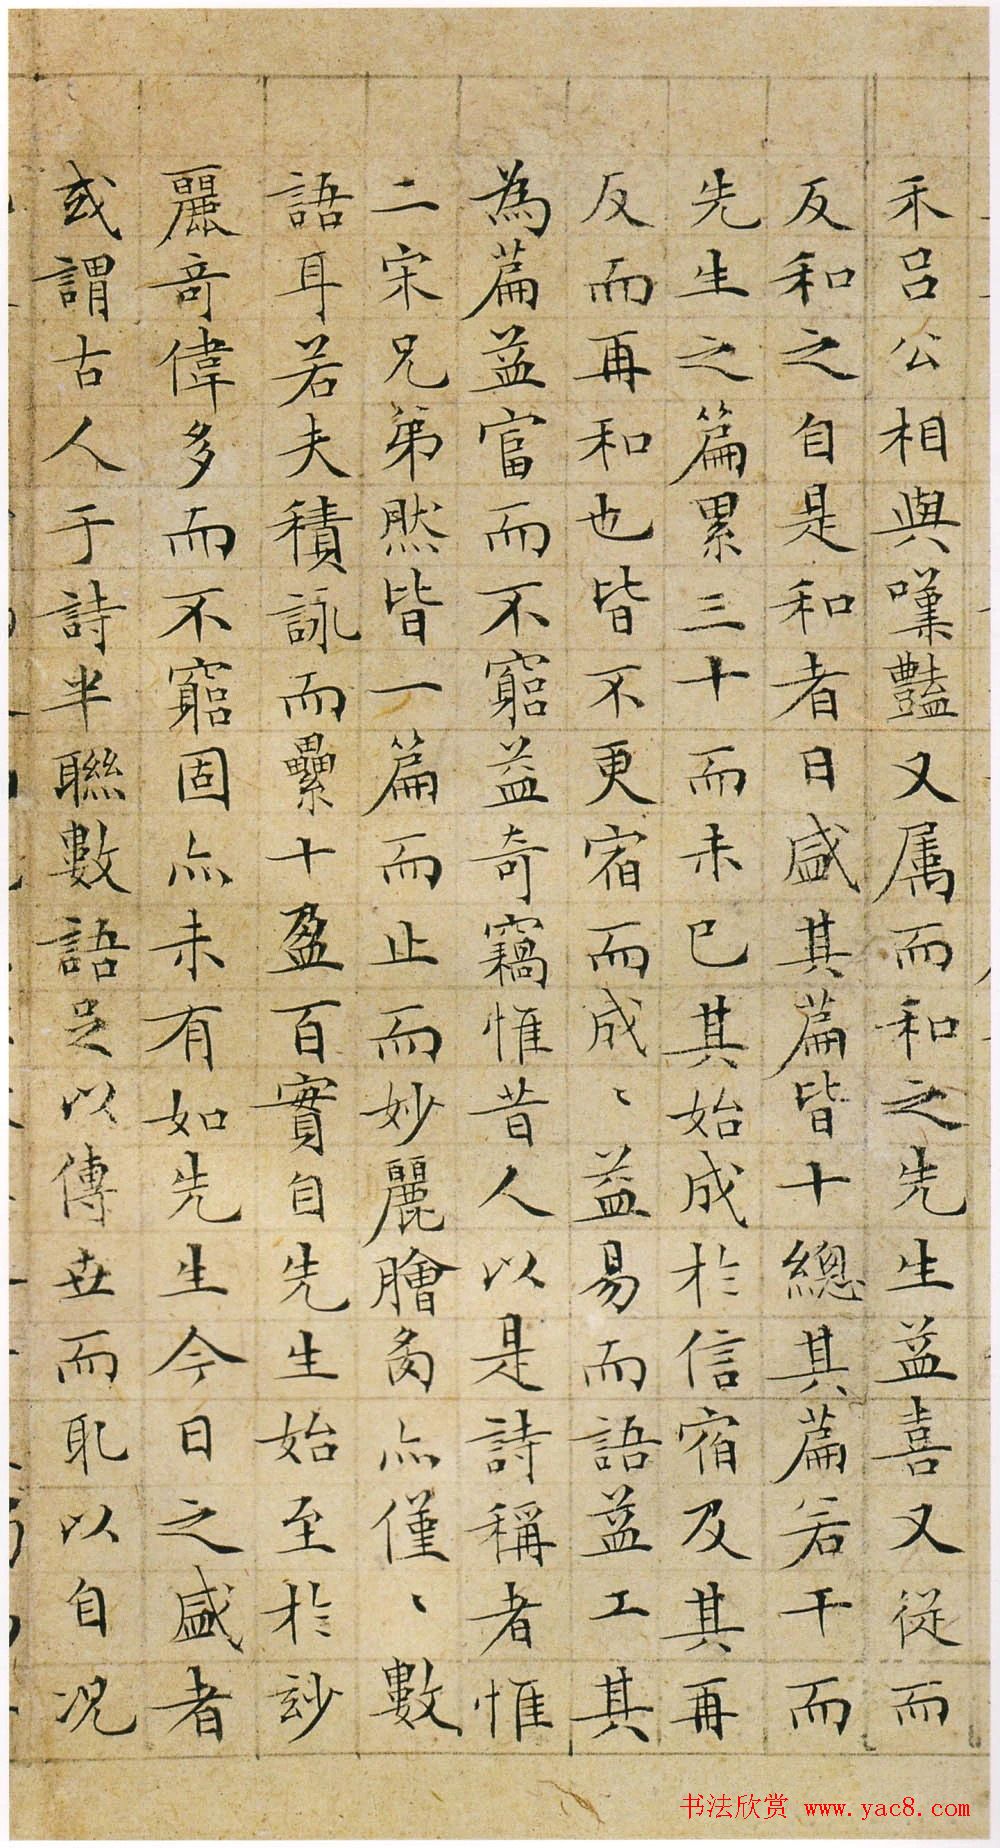 禾呂公相與嘆豔又属而和之先生益喜又從而
反和之自是和者日盛其篇皆十總其篇若干而
先生之篇累三十而未已其始成於信宿及其再
反而再和也皆不更宿而成〻益易而語益工其
為篇益富而不窮益奇竊惟昔人以是詩稱者惟
二宋兄弟然皆一篇而止而妙麗膾炙亦僅〻數
語耳若夫積詠而纍十盈百實自先生始至於玅
麗奇偉多而不窮固亦未有如先生今日之盛者
或謂古人于詩半聯數語足以傳世而耴以自况
书法欣赏 www.yac8.com